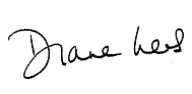 Diane Lees